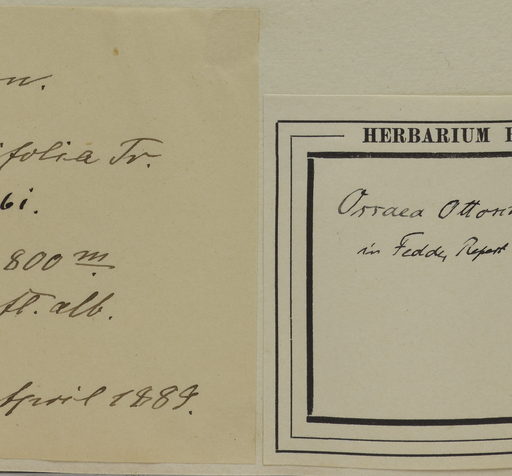 on.
ifolia Tr.
6i.
800 m
fl. alb.
April 1889.
HERBARIUM
Ossaea Ottosch
in Fedde, Repert